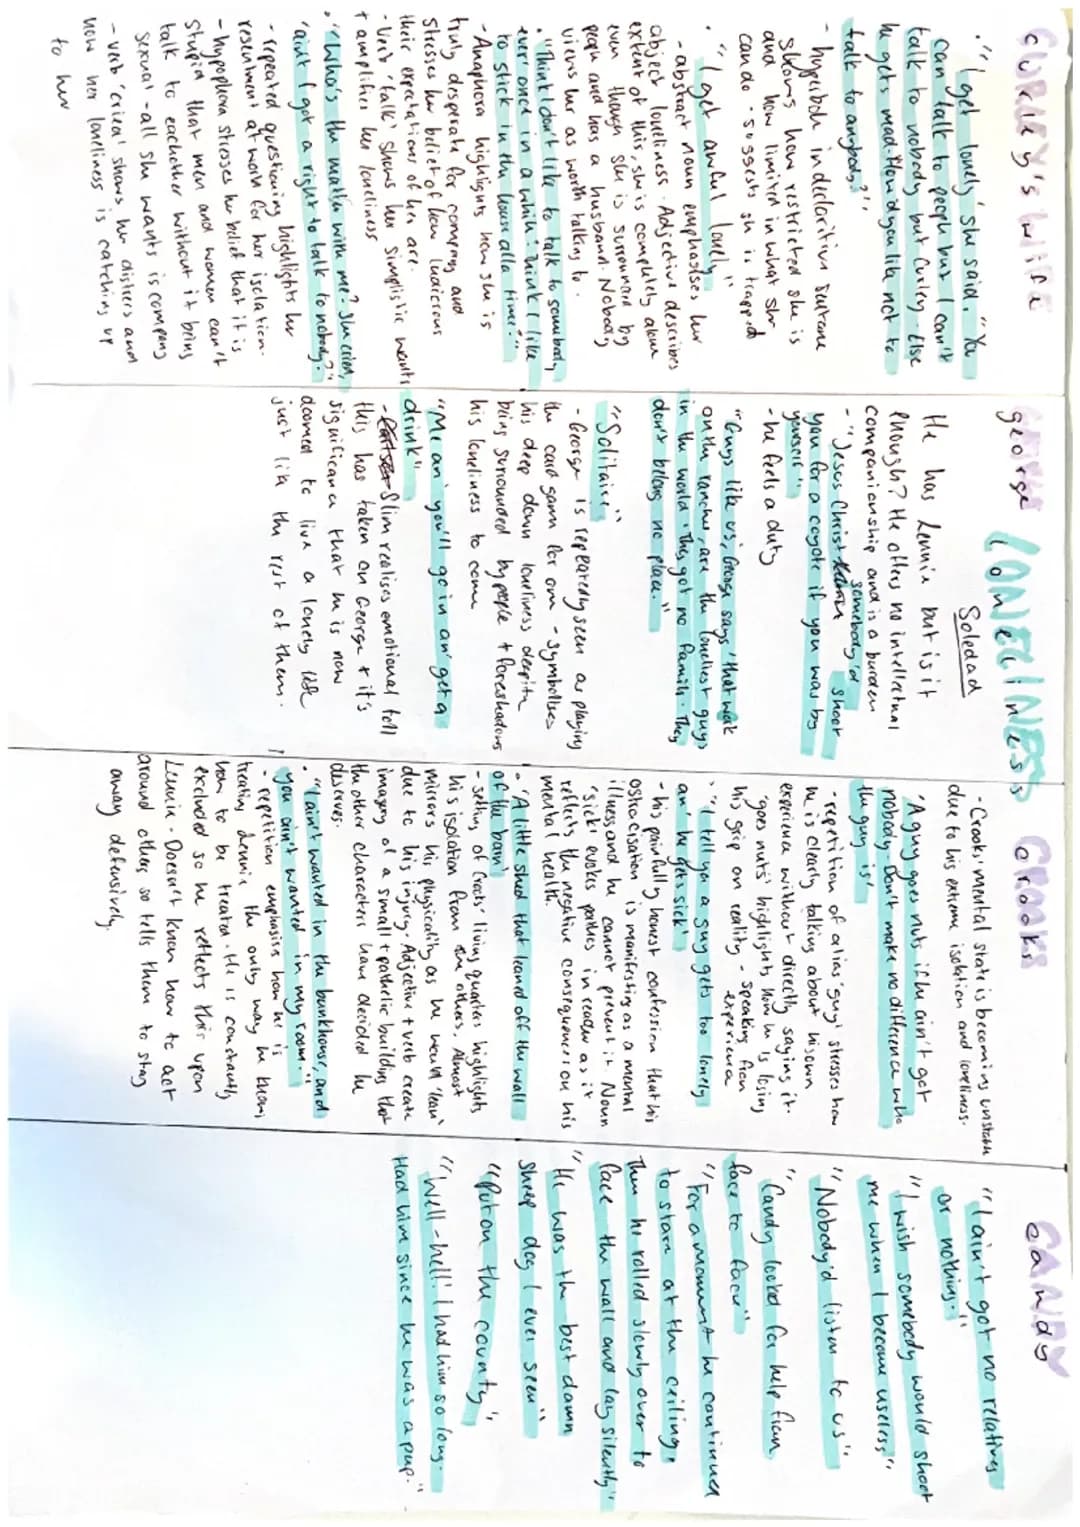 LONELINESS
Soledad
CURLEY'S WIFE
• "'I get lonely' she said. "You
can talk to people but I can't
talk to nobody but Curley. Else
he gets mad. How'd you like not to
talk to anybody?",
- hyperbole in declaritive sentence
shows how restricted she is
and how limited in what she
can do. Suggests she is trapped
• "I get awful lonely"
- abstract noun emphasises her
abject loneliness. Adjective describes
extent of this, she is completely alone
even though she is surrounded by
people and has a husband. Nobody
views her as worth talking to.
• "Think I don't like to talk to somebody
ever' once in a while? Think I like
to stick in tha house alla time?"
- Anaphora highlights how she is
truly desperate for company and
stresses her belief of how ludicrous
their expectations of her are.
- Verb 'talk' shows her simplistic wants
+ amplifies her loneliness
• "Who's the matter with me? She cried,
'aint I got a right to talk to nobody?"
- repeated questioning highlights her
resentment at world for her isolation.
- hypophora stresses her belief that it is
stupid that men and women can't
talk to eachother without it being
sexual - all she wants is company
- verb 'cried' shows her distress and
how her loneliness is catching up
to her
george
He has Lennie but is it
enough? He offers no intellectual
companionship and is a burden
- "Jesus Christ somebody'd shoot
you for a coyote if you was by
yourself"
- he feels a duty
"Guys like us, George says 'that work
on the ranches, are the loneliest guys
in the world. They got no family. They
don't belong no place."
"Solitaire"
- George is repeatedly seen as playing
the card game for one - symbolises
his deep down loneliness despite
being surrounded by people + foreshadows
his loneliness to come
"Me an' you'll go in an' get a
drink"
- Slim realises emotional toll
this has taken on George + it's
significance that he is now
doomed to live a lonely life
just like the rest of them.
CROOKS
crooks
- Crooks' mental state is becoming unstable
due to his extreme isolation and loneliness.
'A guy goes nuts if he ain't got
nobody. Don't make no difference who
the guy is'
- repetition of alias 'guy' stresses how
he is clearly talking about his own
experience without directly saying it.
'goes nuts' highlights how he is losing
his grip on reality - speaking from
experience
• "I tell you a guy gets too lonely
an' he gets sick"
- his painfully honest confession that his
ostracisation is manifesting as a mental
illness and he cannot prevent it. Noun
'sick' evokes pathos in reader as it
reflects the negative consequences on his
mental health.
• 'A little shed that leaned off the wall
of the barn'
- setting of Crooks' living quarters highlights
his isolation from the others. Almost
mirrors his physicality as he would 'lean'
due to his injury. Adjective + verb create
imagery of a small + pathetic building that
the other characters have decided he
deserves.
• "I ain't wanted in the bunkhouse, and
you ain't wanted in my room."
- repetition emphasis how he is
treating Lennie the only way he knows
how to be treated. He is constantly
excluded so he reflects this upon
Lennie. Doesn't know how to act
around others so tells them to stay
away defensively.
CANDY
candy
"I ain't got no relatives
or nothing."
"I wish somebody would shoot
me when I become useless",
"Nobody'd listen to us"
"Candy looked for help from
face to face"
"For a moment he continued
to stare at the ceiling.
Then he rolled slowly over to
face the wall and lay silently"
"He was the best damn
sheep dog I ever seen"
"Put on the county",
"Well-hell! I had him so long.
Had him since he was a pup."